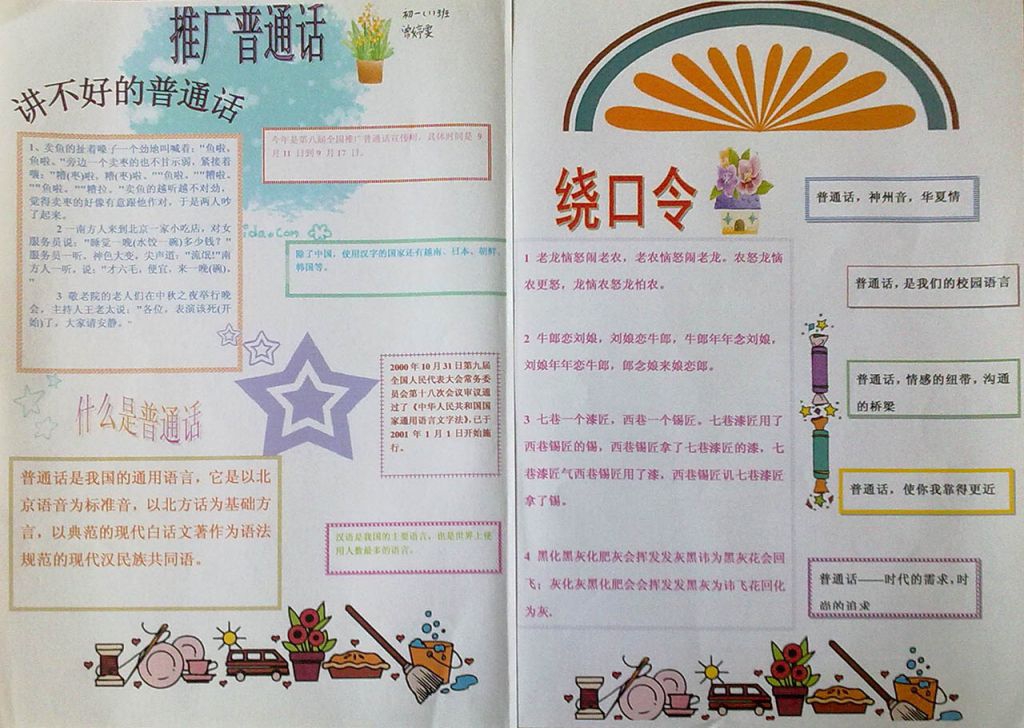 推广普通话
初一(1)班
讲不好的普通话
1、卖鱼的扯着嗓子一个劲地叫喊着："鱼啦,
鱼啦。"旁边一个卖枣的也不甘示弱，紧接着
嚷："糟(枣)啦，糟(枣)啦。""鱼啦。""糟啦。
""鱼啦。""糟拉。"卖鱼的越听越不对劲,
觉得卖枣的好像有意跟他作对，于是两人吵
了起来。
2 一南方人来到北京一家小吃店，对女
服务员说："睡觉一晚(水饺一碗)多少钱？"
服务员一听、神色大变，尖声道："流氓!"南
方人一听，说："才六毛，便宜，来一晚(碗)。
"
3 敬老院的老人们在中秋之夜举行晚
会，主持人王老太说："各位，表演该死(开
始)了，大家请安静。"
今年是第八届全国推广普通话宣传周，具体时间是 9
月 11 日到 9 月 17 日。
除了中国，使用汉字的国家还有越南、日本、朝鲜、
韩国等。
2000 年 10 月 31 日第九届
全国人民代表大会常务委
员会第十八次会议审议通
过了《中华人民共和国国
家通用语言文字法》，已于
2001 年 1 月 1 日开始施
行。
什么是普通话
普通话是我国的通用语言，它是以北
京语音为标准音，以北方话为基础方
言，以典范的现代白话文著作为语法
规范的现代汉民族共同语。
汉语是我国的主要语言，也是世界上使
用人数最多的语言。
绕口令
1 老龙恼怒闹老农，老农恼怒闹老龙。农怒龙恼
农更怒，龙恼农怒龙怕农。
2 牛郎恋刘娘，刘娘恋牛郎，牛郎年年念刘娘，
刘娘年年恋牛郎，郎念娘来娘恋郎。
3 七巷一个漆匠，西巷一个锡匠。七巷漆匠用了
西巷锡匠的锡，西巷锡匠拿了七巷漆匠的漆，七
巷漆匠气西巷锡匠用了漆，西巷锡匠讥七巷漆匠
拿了锡。
4 黑化黑灰化肥灰会挥发发灰黑讳为黑灰花会回
飞；灰化灰黑化肥会会挥发发黑灰为讳飞花回化
为灰。
普通话，神州音，华夏情
普通话，是我们的校园语言
普通话，情感的纽带，沟通
的桥梁
普通话，使你我靠得更近
普通话——时代的需求，时
尚的追求